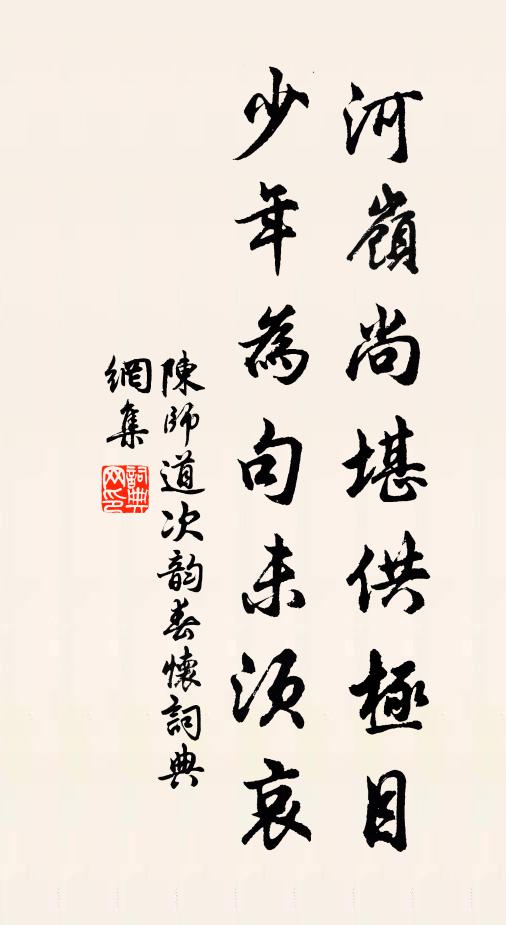 河嶺尚堪供極目
少年為句未須哀
陳師道次韵春懷詞典
網集
詞典
网印